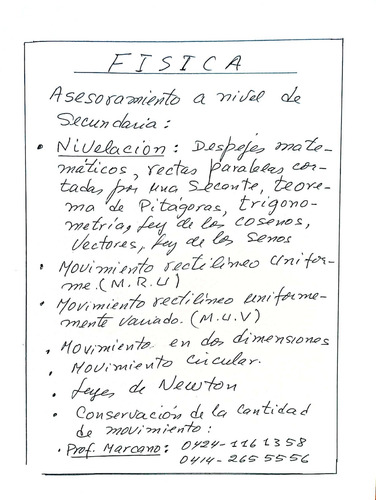 FISICA
Asesoramiento a nivel de
Secundaria:
• Nivelación: Despejes mate-
máticos, rectas parabelas cor-
tadas por una Secante, teore-
ma de Pitágoras, trigono-
metría, Ley de los cosenos,
Vectores, Ley de los senos
• Movimiento rectilíneo unifor-
me. (M.R.U)
• Movimiento rectilíneo uniforme-
mente variado. (M.U.V)
• Movimiento en dos dimensiones
• Movimiento circular.
• Leyes de Newton
• Conservación de la cantidad
de movimiento:
• Prof. Marcano: 0424-1161358
0414-2655556